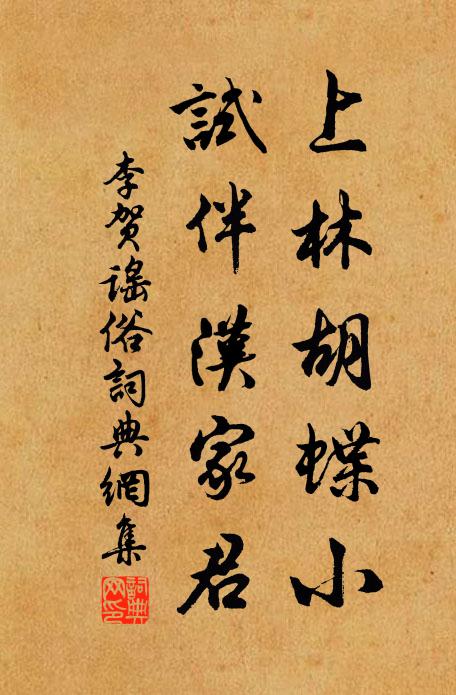 上林胡蝶小
試伴漢家君
李賀謠俗詞典網集
詞典
网印